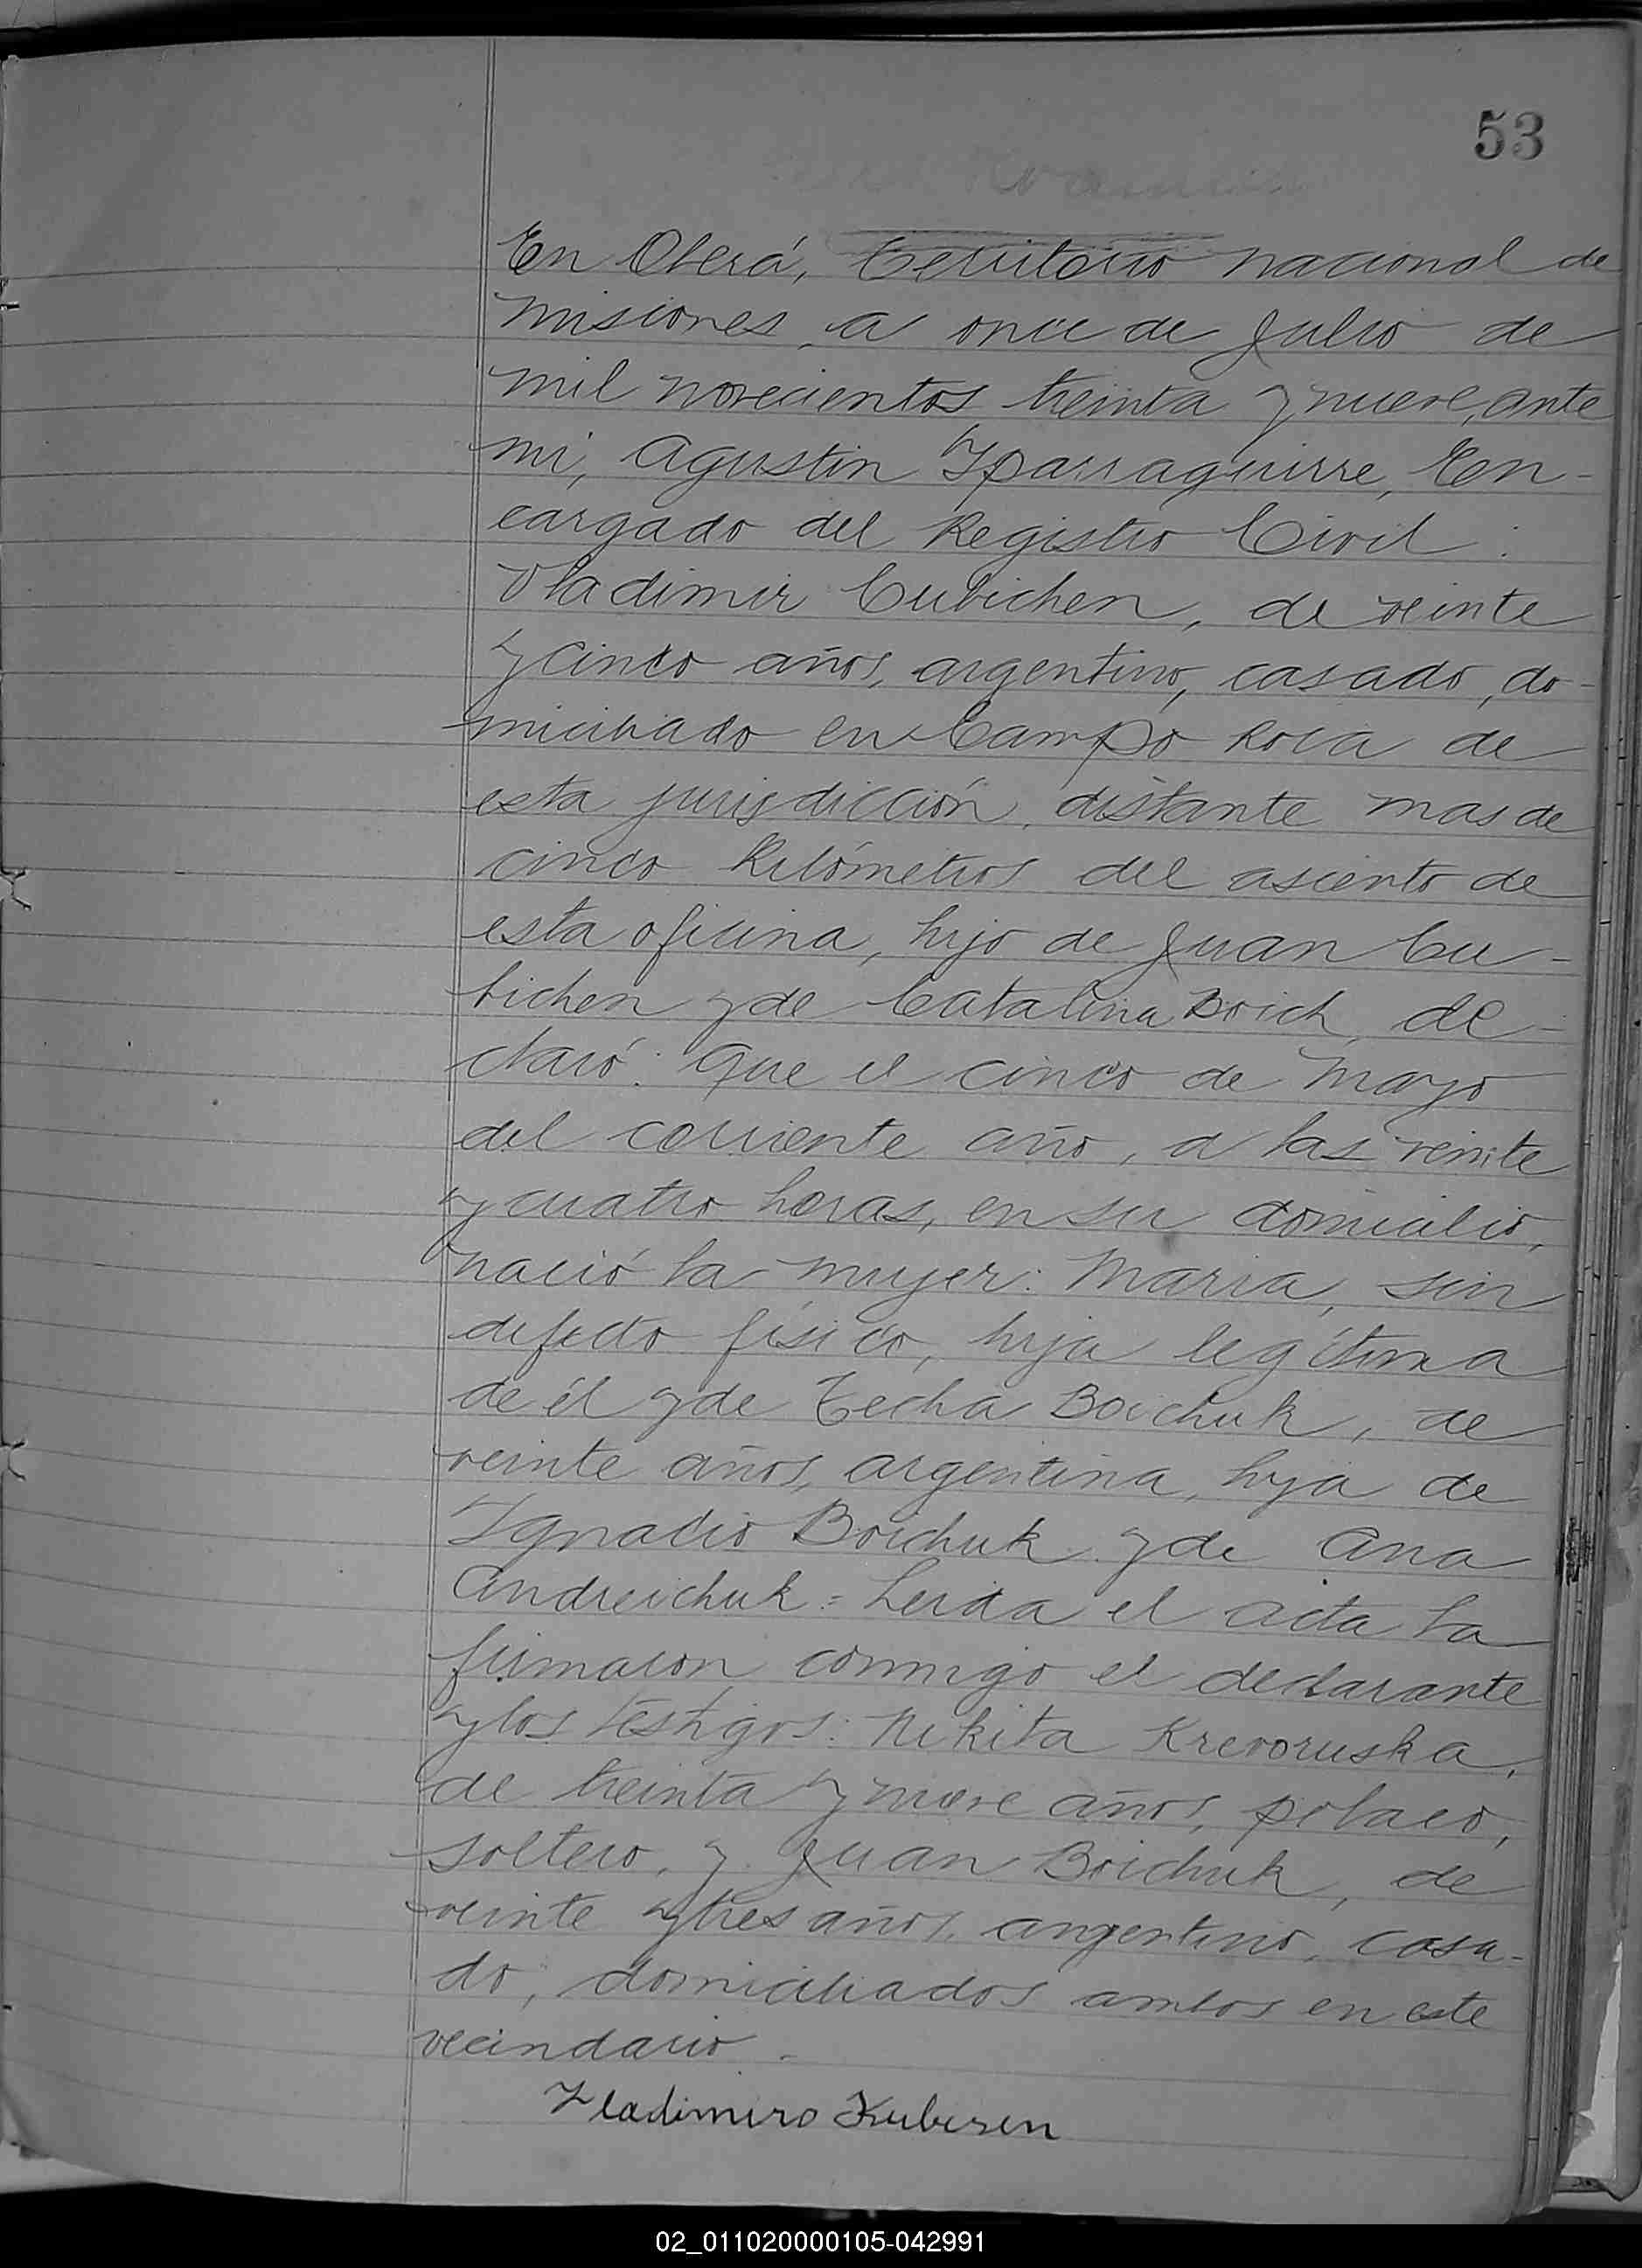 53
En Oberá, Territorio nacional de
misiones, a once de Julio de
mil novecientos treinta y nueve, ante
mi, Agustin Yparraguirre, En-
cargado del Registro Civil:
Vladimir Cubichen, de veinte
y cinco años, argentino, casado, do-
miciliado en Campo Roca de
esta jurisdicción, distante mas de
cinco Kilómetros del asiento de
esta oficina, hijo de Juan Cu-
bichen y de Catalina Boich, de-
claró: Que el cinco de Mayo
del corriente año, a las veinte
y cuatro horas, en su domicilio,
nació la mujer: Maria, sin
defecto físico, hija legítima
de él y de Techa Boichuk, de
veinte años, argentina, hija de
Ygnacio Boichuk y de Ana
Andreichuk = Leida el acta la
firmaron conmigo el declarante
y los testigos: Nikita Krevoruska,
de treinta y nueve años, polaco,
soltero, y Juan Boichuk, de
veinte y tres años, argentino, casa-
do, domiciliados ambos en este
vecindario.
Vladimiro Kubisen
02_011020000105-042991